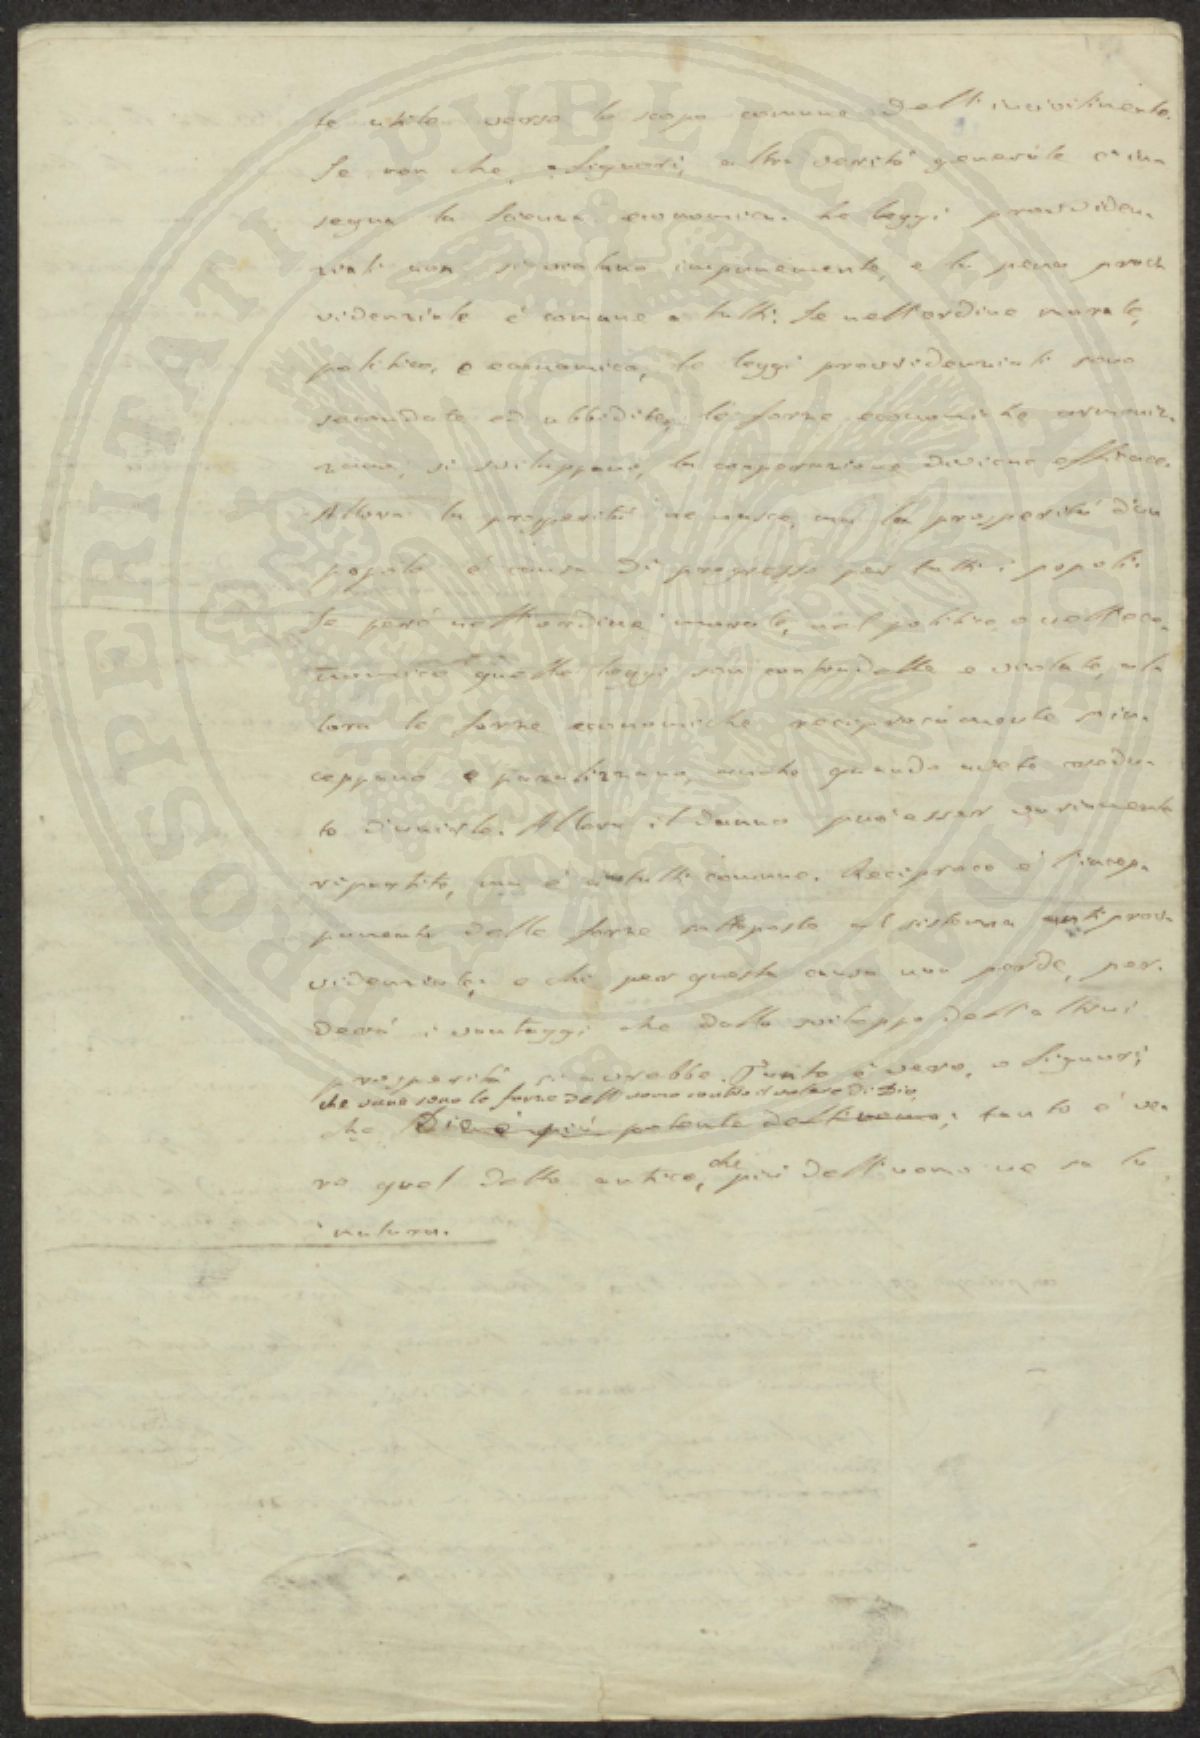 te utile verso lo scopo comune dell'incivilimento.
Se non che, o Signori, altra verità generale c'in-
segna la scienza economica. Le leggi provviden-
ziali non si violano impunemente, e la pena prov-
videnziale è comune a tutti. Se nell'ordine morale,
politico, e economico, le leggi provvidenziali sono
secondate ed ubbidite, le forze economiche armoniz-
zano, si sviluppano, la cooperazione diviene efficace.
Allora la prosperità ne nasce, ma la prosperità d'un
popolo è causa di progresso per tutti i popoli.
Se però nell'ordine morale, nel politico o nell'eco-
nomico quelle leggi son contradette e violate, al-
lora le forze economiche reciprocamente s'in-
ceppano e paralizzano, anche quando avete credu-
to d'unirle. Allora il danno può esser variamente
ripartito, ma è a tutti comune. Reciproco è l'incep-
pamento delle forze sottoposte al sistema antiprov-
videnziale, e chi per questa causa non perde, per-
derà i vantaggi che dallo sviluppo dell'altrui
prosperità si avrebbe. Tanto è vero, o Signori,
che vane sono le forze dell'uomo contro il volere di Dio,
che Dio è più potente dell'uomo; tanto è ve-
ro quel detto antico, che più dell'uomo ne sa la
natura.
PROSPERITATI PUBLICAE